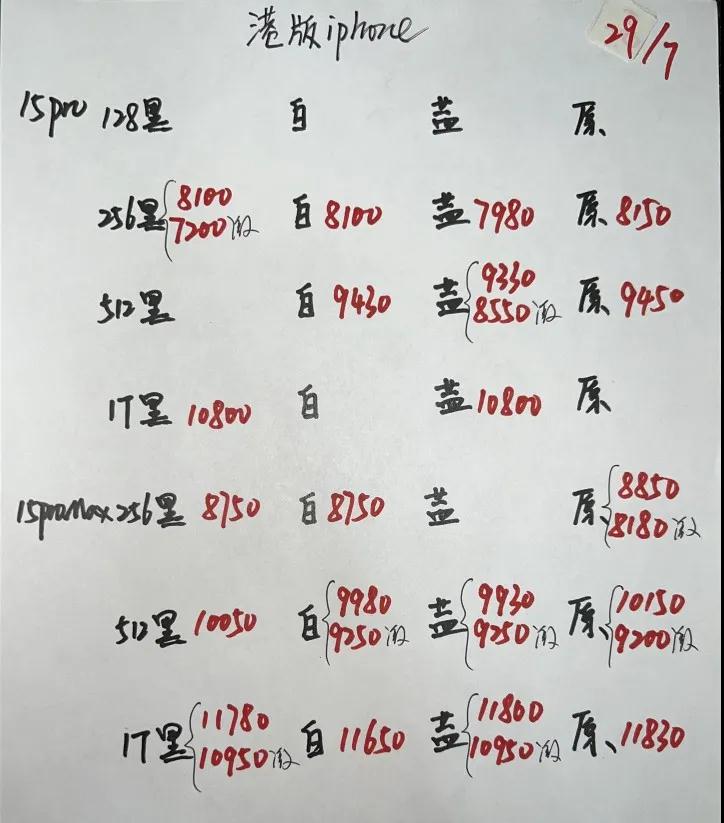 港版iphone 29/7
15pro 128黑 白 蓝 原
256黑 8100 7200激 白 8100 蓝 7980 原 8150
512黑 白 9430 蓝 9330 8550激 原 9450
1T黑 10800 白 蓝 10800 原
15proMax 256黑 8750 白 8750 蓝 原 8850 8180激
512黑 10050 白 9980 9250激 蓝 9930 9250激 原 10150 9200激
1T黑 11780 10950激 白 11650 蓝 11800 10950激 原 11830